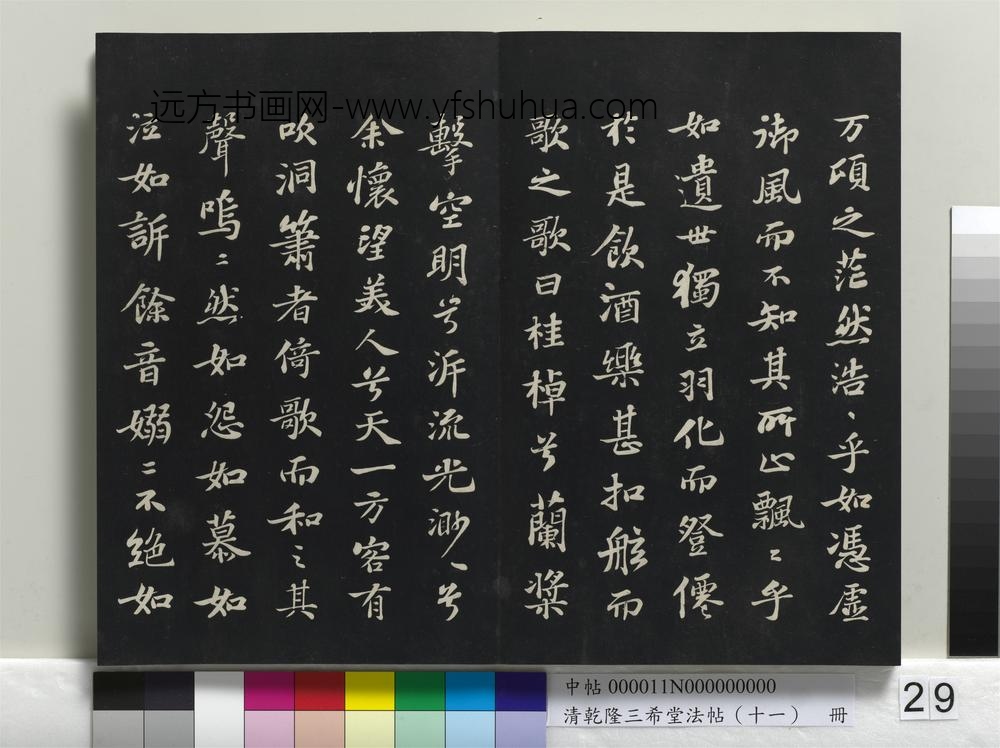 远方书画网-www.yfshuhua.com
万頃之茫然浩丶乎如憑虚
御風而不知其所止飄〻乎
如遺世獨立羽化而登僊
於是飲酒樂甚扣舷而
歌之歌曰桂棹兮蘭槳
擊空明兮泝流光渺丶兮
余懷望美人兮天一方客有
吹洞簫者倚歌而和之其
聲嗚〻然如怨如慕如
泣如訴餘音嫋〻不絶如
中帖 000011N000000000
清乾隆三希堂法帖（十一） 冊
29